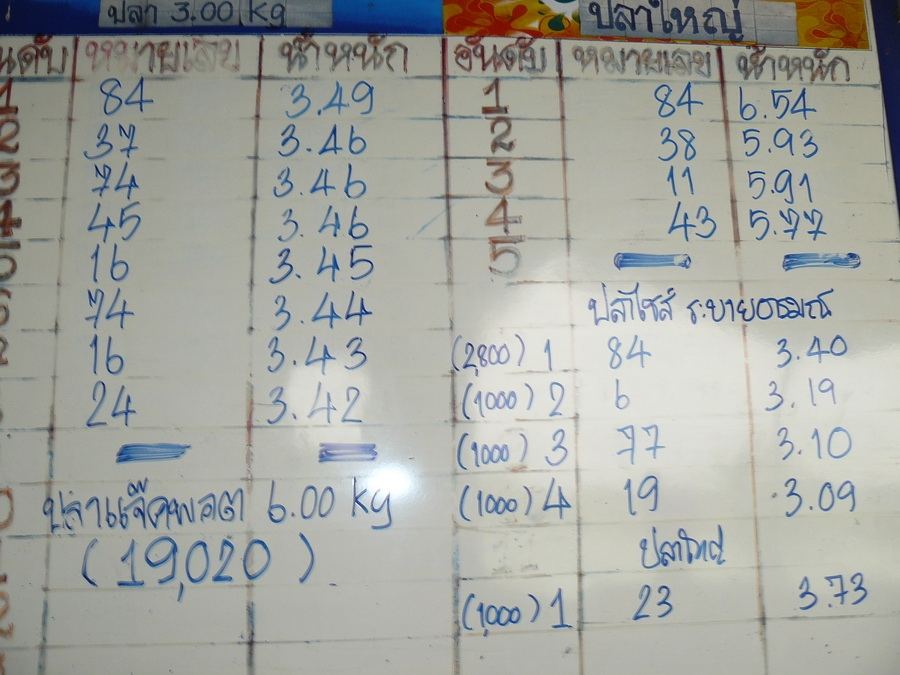 ปลา 3.00 kg
อันดับ หมายเลข น้ำหนัก
1 84 3.49
2 37 3.46
3 74 3.46
4 45 3.46
5 16 3.45
74 3.44
16 3.43
24 3.42
ปลาแจ๊คพอต 6.00 kg
(19,020)
ปลาใหญ่
อันดับ หมายเลข น้ำหนัก
1 84 6.54
2 38 5.93
3 11 5.91
4 43 5.77
5
ปลาไซส์ ระบายอารมณ์
(2,800) 1 84 3.40
(1000) 2 6 3.19
(1000) 3 77 3.10
(1000) 4 19 3.09
ปลาใหญ่
(1,000) 1 23 3.73